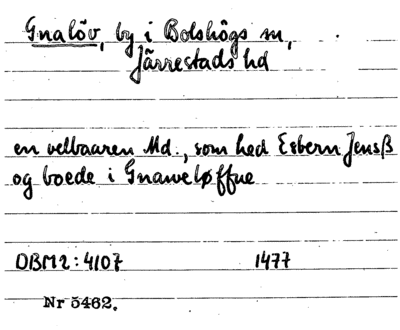 Gnalöv, by i Bolshögs sn,
Järrestads hd
en velbaaren Md., som hed Esbern Jensß
og boede i Gnaweløffue
DBM2:4107 1477
Nr 5462.